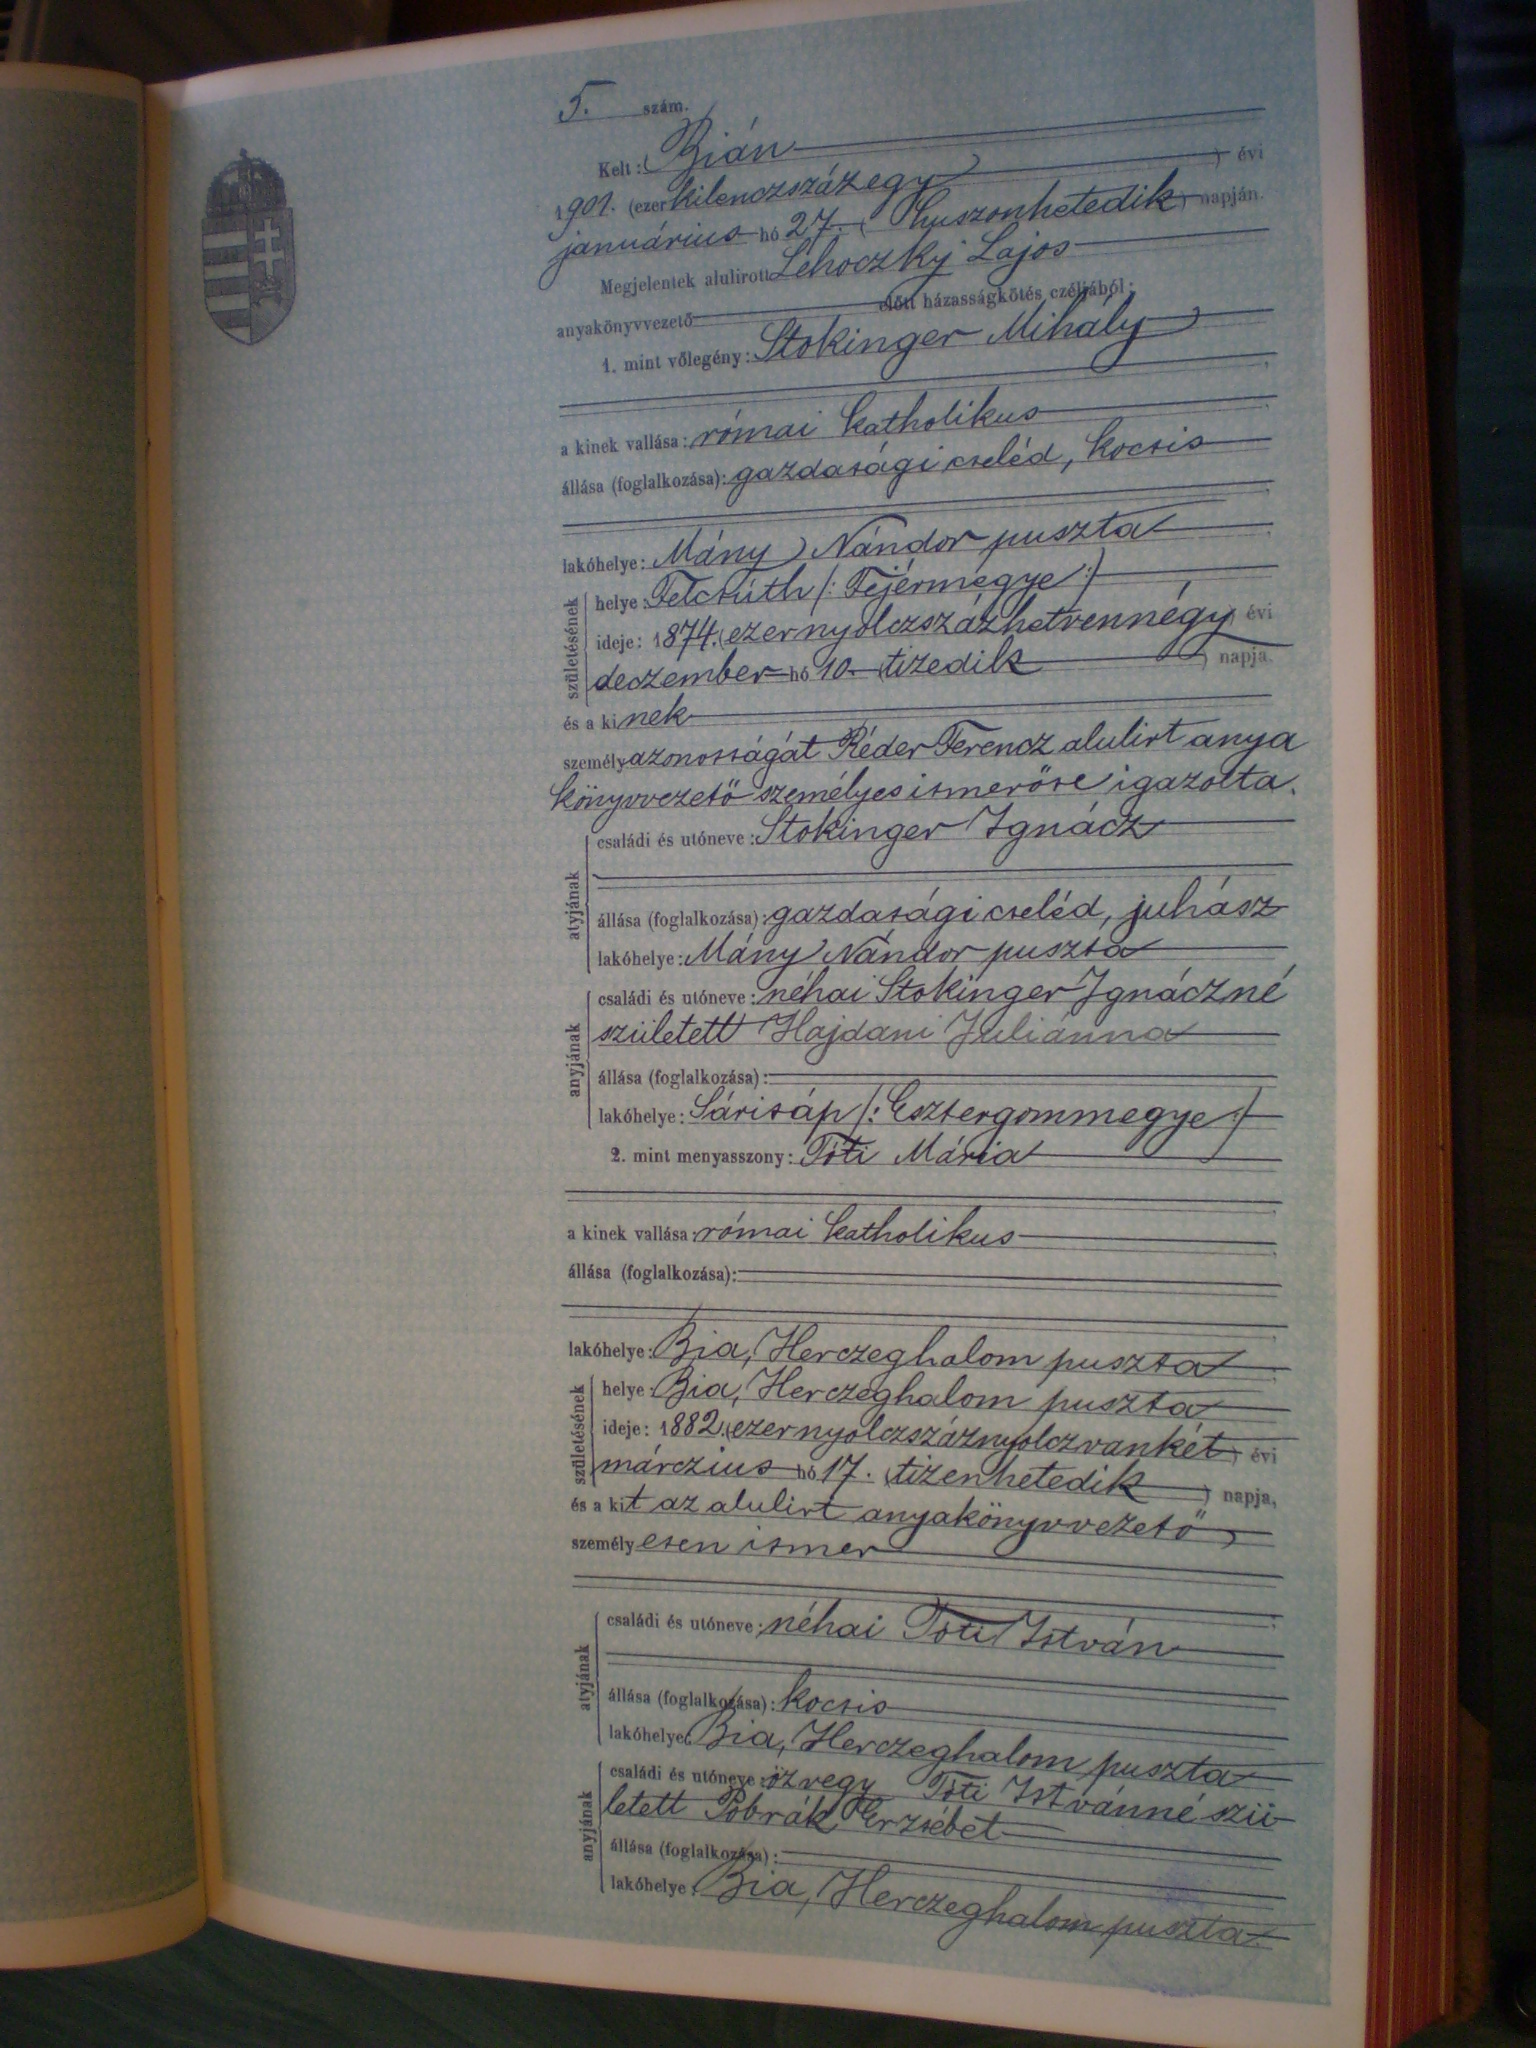 5. szám.
Kelt: Bián
1901. (ezerkilenczszázegy) évi
január­ius hó 27. (huszonhetedik) napján.
Megjelentek alulirott Lehoczky Lajos
anyakönyvvezető előtt házasságkötés czéljából:
1. mint vőlegény: Stokinger Mihály
a kinek vallása: római katholikus
állása (foglalkozása): gazdasági cseléd, kocsis
lakóhelye: Mány, Nándor puszta
születésének helye: Felcsúth (: Fejérmegye :)
ideje: 1874. (ezernyolczszázhetvennégy) évi
deczember hó 10. (tizedik) napja.
és a kinek
személyazonosságát Réder Ferencz alulirt anya
könyvvezető személyes ismerőse igazolta.
atyjának családi és utóneve: Stokinger Ignácz
állása (foglalkozása): gazdasági cseléd, juhász
lakóhelye: Mány Nándor puszta
anyjának családi és utóneve: néhai Stokinger Ignáczné
született Hajdani Juliánna
állása (foglalkozása):
lakóhelye: Sárisáp (: Esztergommegye :)
2. mint menyasszony: Tóti Mária
a kinek vallása: római katholikus
állása (foglalkozása):
lakóhelye: Bia, Herczeghalom puszta
születésének helye: Bia, Herczeghalom puszta
ideje: 1882. (ezernyolczsz­áznyolczvankét) évi
márczius hó 17. (tizenhetedik) napja,
és a kit az alulirt anyakönyvvezető
személyesen ismer
atyjának családi és utóneve: néhai Tóti István
állása (foglalkozása): kocsis
lakóhelye: Bia, Herczeghalom puszta
anyjának családi és utóneve: özvegy Tóti Istvánné szü-
letett Pobrák Erzsébet
állása (foglalkozása):
lakóhelye: Bia, Herczeghalom puszta